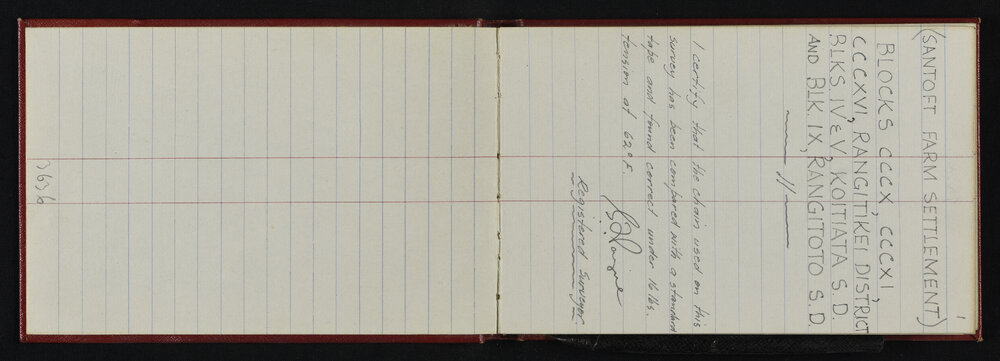 1
(SANTOFT FARM SETTLEMENT)
BLOCKS CCCX, CCCXI,
CCCXVI, RANGITIKEI DISTRICT
BLKS IV & V KOITIATA S.D.
AND BLK. IX, RANGITOTO S.D.
I certify that the chain used on this
survey has been compared with a standard
tape and found correct under 16 lbs.
tension at 62° F.
Registered Surveyor.
3636